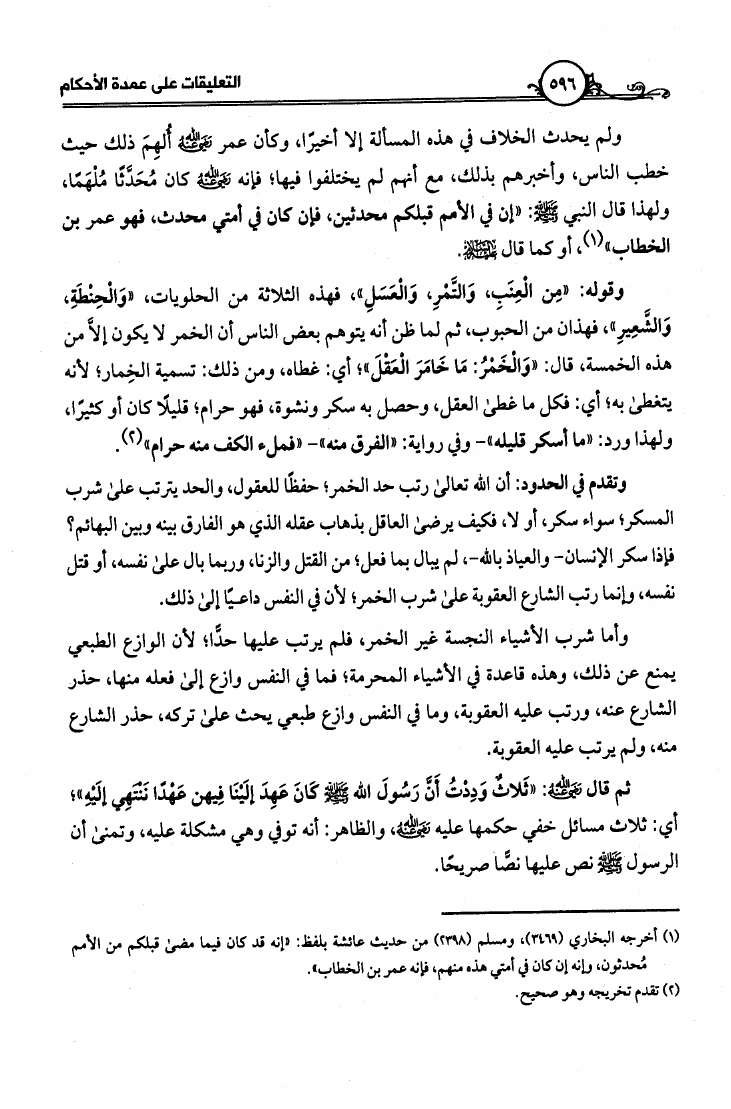 ٥٩٦
التعليقات على عمدة الأحكام
ولم يحدث الخلاف في هذه المسألة إلا أخيرًا، وكأن عمر رضي الله عنه أُلهِمَ ذلك حيث
خطب الناس، وأخبرهم بذلك، مع أنهم لم يختلفوا فيها؛ فإنه رضي الله عنه كان مُحَدَّثًا مُلْهَمًا،
ولهذا قال النبي ﷺ: «إن في الأمم قبلكم محدثين، فإن كان في أمتي محدث، فهو عمر بن
الخطاب»(١)، أو كما قال
وقوله: «مِن الْعِنَبِ، وَالتَّمْرِ، وَالْعَسَلِ»، فهذه الثلاثة من الحلويات، «وَالْحِنْطَةِ،
وَالشَّعِيرِ»، فهذان من الحبوب، ثم لما ظن أنه يتوهم بعض الناس أن الخمر لا يكون إلاَّ من
هذه الخمسة، قال: «وَالْخَمْرُ: مَا خَامَرَ الْعَقْلَ»؛ أي: غطاه، ومن ذلك: تسمية الخِمار؛ لأنه
يتغطىٰ به؛ أي: فكل ما غطىٰ العقل، وحصل به سكر ونشوة، فهو حرام؛ قليلًا كان أو كثيرًا،
ولهذا ورد: «ما أسكر قليله»- وفي رواية: «الفرق منه»- «فملء الكف منه حرام»(٢).
وتقدم في الحدود: أن الله تعالىٰ رتب حد الخمر؛ حفظًا للعقول، والحد يترتب علىٰ شرب
المسكر؛ سواء سكر، أو لا، فكيف يرضىٰ العاقل بذهاب عقله الذي هو الفارق بينه وبين البهائم؟
فإذا سكر الإنسان- والعياذ بالله-، لم يبال بما فعل؛ من القتل والزنا، وربما بال علىٰ نفسه، أو قتل
نفسه، وإنما رتب الشارع العقوبة علىٰ شرب الخمر؛ لأن في النفس داعيًا إلىٰ ذلك.
وأما شرب الأشياء النجسة غير الخمر، فلم يرتب عليها حدًّا؛ لأن الوازع الطبعي
يمنع عن ذلك، وهذه قاعدة في الأشياء المحرمة؛ فما في النفس وازع إلىٰ فعله منها، حذر
الشارع عنه، ورتب عليه العقوبة، وما في النفس وازع طبعي يحث علىٰ تركه، حذر الشارع
منه، ولم يرتب عليه العقوبة.
ثم قال رضي الله عنه: «ثَلَاثٌ وَدِدْتُ أَنَّ رَسُولَ الله ﷺ كَانَ عَهِدَ إِلَيْنَا فِيهن عَهْدًا نَنْتَهِي إِلَيْهِ»؛
أي: ثلاث مسائل خفي حكمها عليه رضي الله عنه، والظاهر: أنه توفي وهي مشكلة عليه، وتمنىٰ أن
الرسول ﷺ نص عليها نصًّا صريحًا.
(١) أخرجه البخاري (٣٤٦٩)، ومسلم (٢٣٩٨) من حديث عائشة بلفظ: «إنه قد كان فيما مضىٰ قبلكم من الأمم
مُحدثون، وإنه إن كان في أمتي هذه منهم، فإنه عمر بن الخطاب».
(٢) تقدم تخريجه وهو صحيح.